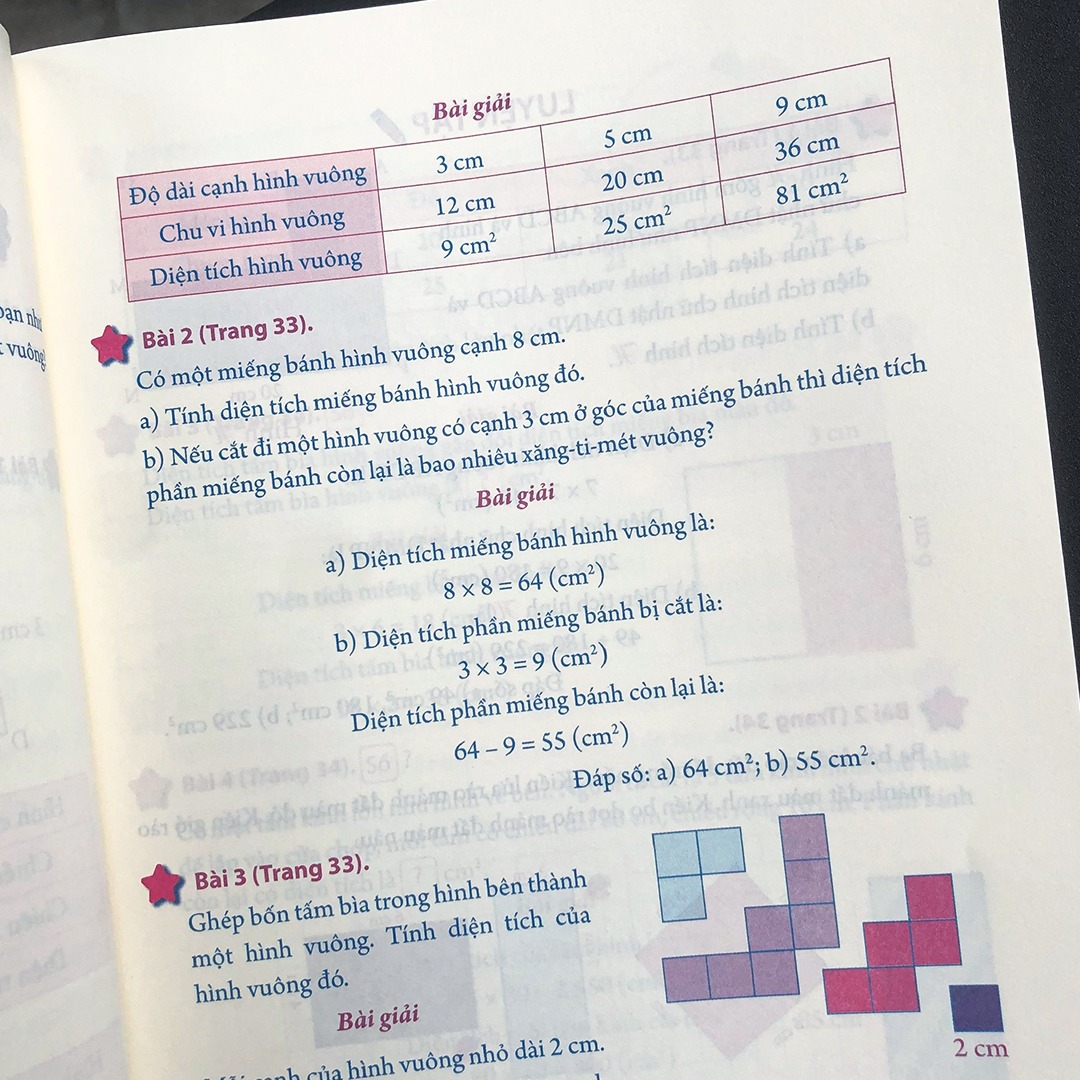 Bài giải
Độ dài cạnh hình vuông 3 cm 5 cm 9 cm
Chu vi hình vuông 12 cm 20 cm 36 cm
Diện tích hình vuông 9 cm² 25 cm² 81 cm²
Bài 2 (Trang 33).
Có một miếng bánh hình vuông cạnh 8 cm.
a) Tính diện tích miếng bánh hình vuông đó.
b) Nếu cắt đi một hình vuông có cạnh 3 cm ở góc của miếng bánh thì diện tích
phần miếng bánh còn lại là bao nhiêu xăng-ti-mét vuông?
Bài giải
a) Diện tích miếng bánh hình vuông là:
8 × 8 = 64 (cm²)
b) Diện tích phần miếng bánh bị cắt là:
3 × 3 = 9 (cm²)
Diện tích phần miếng bánh còn lại là:
64 – 9 = 55 (cm²)
Đáp số: a) 64 cm²; b) 55 cm².
Bài 3 (Trang 33).
Ghép bốn tấm bìa trong hình bên thành
một hình vuông. Tính diện tích của
hình vuông đó.
Bài giải
2 cm
của hình vuông nhỏ dài 2 cm.